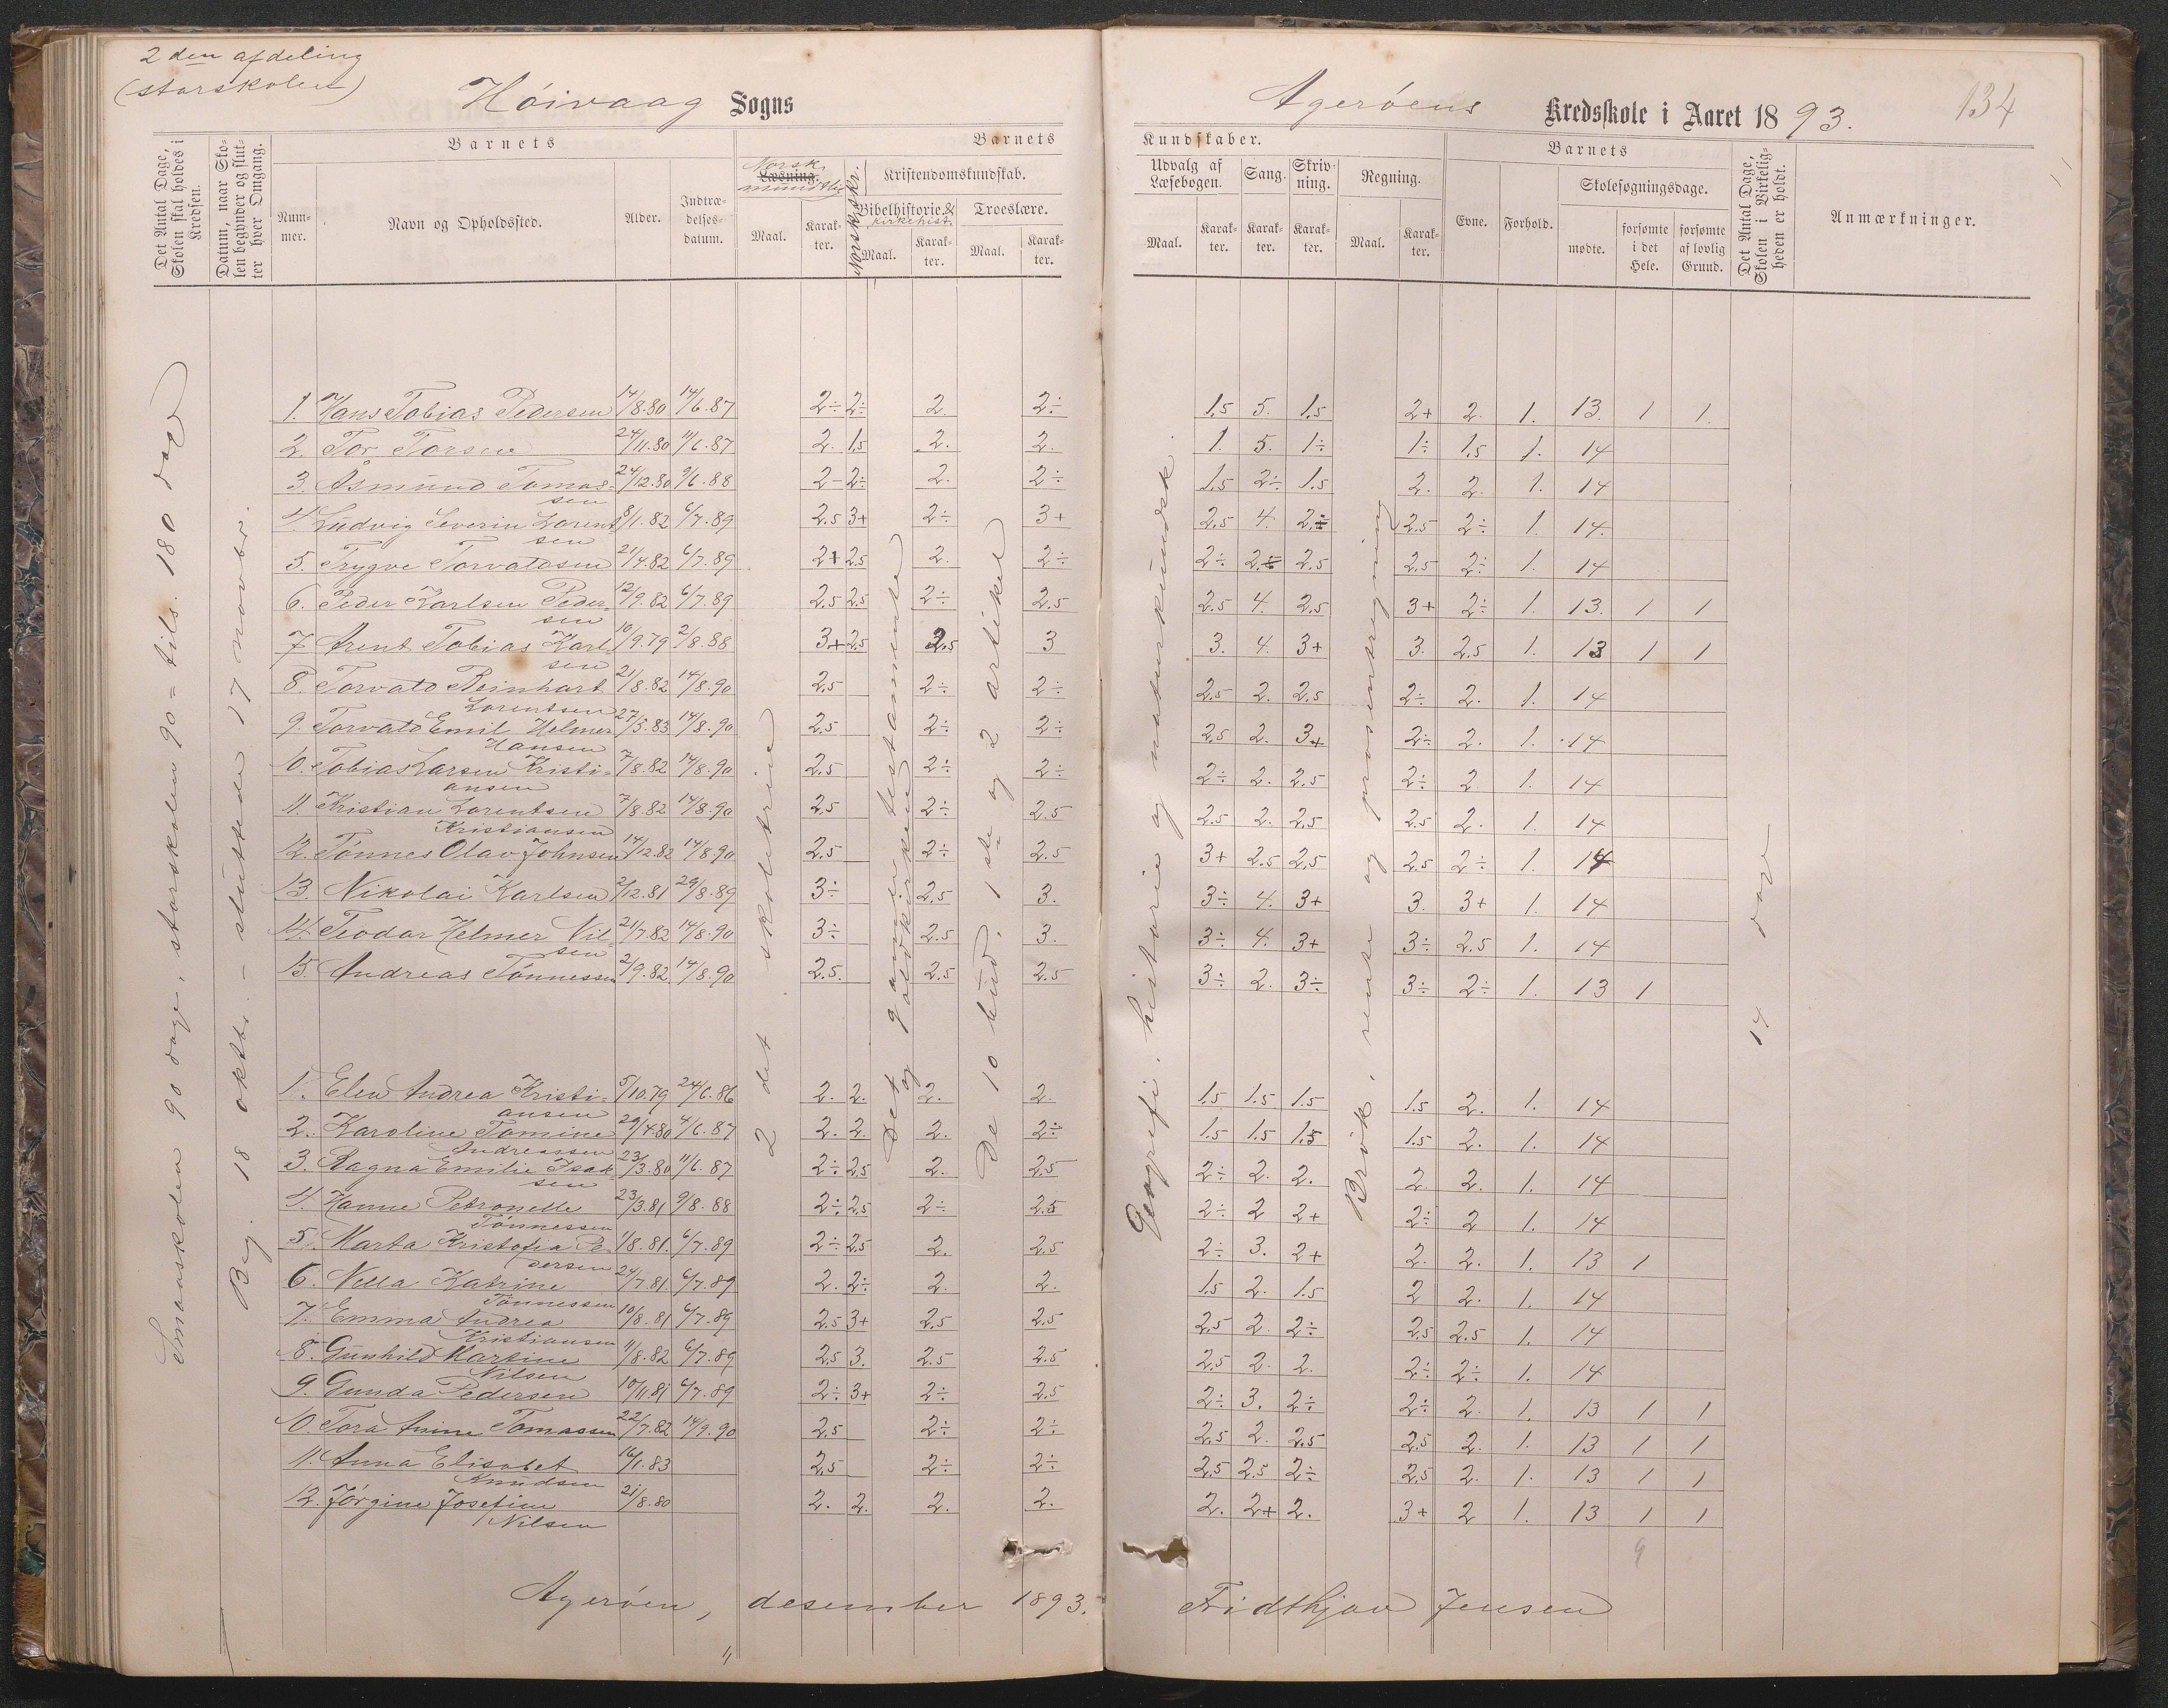 2 den afdeling
(storskolen)
Høivaag Sogns
Agerøens Kredsskole i Aaret 1893.
134
Det Antal Dage, Skolen skal holdes i Kredsen.
Datum, naar Skolen begynder og slutter hver Omgang.
Barnets
Nummer.
Navn og Opholdssted.
Alder.
Indtrædelsesdatum.
Barnets
Norsk
Læsning.
mundtlig
Maal.
Karakter.
Norsk skr.
Kristendomskundskab.
Bibelhistorie. &
kirkehist.
Maal.
Karakter.
Troeslære.
Maal.
Karakter.
Kundskaber.
Udvalg af Læsebogen.
Maal.
Karakter.
Sang.
Karakter.
Skrivning.
Karakter.
Regning.
Maal.
Karakter.
Barnets
Evne.
Forhold.
Skolesøgningsdage.
mødte.
forsømte i det Hele.
forsømte af lovlig Grund.
Det Antal Dage, Skolen i Virkeligheden er holdt.
Anmærkninger.
Smaaskolen 90 dage, storskolen 90 = tils. 180 dage
Beg. 18 oktbr. - sluttede 17 novbr.
2 det skoletrin
Det gamle testamente
og oldkirken
De 10 bud, 1ste og 2 artikel
Geografi, historie og naturkundsk.
Brøk, rente og prosentregning
14 dage
1. Hans Tobias Pedersen 14/8.80 14/6.87 2÷ 2÷ 2. 2÷ 1,5 5. 1,5 2+ 2. 1. 13. 1 1
2. Tor Torsen 24/11.80 11/6.87 2. 1,5 2. 2. 1. 5. 1÷ 1÷ 1,5 1. 14
3. Åsmund Tomassen 24/12.80 9/6.88 2- 2÷ 2. 2÷ 1,5 2÷ 1.5 2. 2. 1. 14
4. Ludvig Severin Lorentsen 8/1.82 6/7.89 2.5 3+ 2÷ 3+ 2,5 4. 2÷ 2.5 2÷ 1. 14.
5. Trygve Torvaldsen 21/4.82 6/7.89 2+ 2.5 2. 2÷ 2÷ 2÷ 2.5 2.5 2÷ 1. 14
6. Peder Karlsen Pedersen 12/9.82 6/7.89 2.5 2.5 2÷ 2.5 2.5 4. 2.5 3+ 2÷ 1. 13. 1 1
7 Arent Tobias Karlsen 10/9.79 2/8.88 3+ 2.5 2.5 3 3. 4. 3+ 3. 2.5 1. 13 1 1
8. Torvald Reinhart Lorentsen 21/8.82 14/8.90 2.5 2÷ 2÷ 2.5 2. 2.5 2÷ 2. 1. 14
9. Torvald Emil Helmer Hansen 27/5.83 14/8.90 2.5 2÷ 2÷ 2.5 2. 3+ 2÷ 2. 1. 14
10. Tobias Larsen Kristiansen 7/8.82 14/8.90 2.5 2÷ 2÷ 2÷ 2. 2.5 2÷ 2 1. 14
11. Kristian Lorentsen Kristiansen 7/8.82 14/8.90 2.5 2÷ 2.5 2.5 2. 2.5 2.5 2. 1. 14
12. Tønnes Olav Johnsen 14/12.82 14/8.90 2.5 2÷ 2.5 3+ 2.5 2,5 2.5 2÷ 1. 14
13. Nikolai Karlsen 2/12.81 29/8.89 3÷ 2.5 3. 3÷ 4. 3+ 3. 3+ 1. 14
14. Teodor Helmer Nilsen 21/7.82 14/8.90 3÷ 2.5 3. 3÷ 4. 3+ 3÷ 2.5 1. 14
15. Andreas Tønnessen 2/9.82 14/8.90 2.5. 2.5 2.5 3÷ 2. 3÷ 3÷ 2÷ 1. 13 1
1. Elen Andrea Kristiansen 5/10.79 24/6.86 2. 2. 2. 2. 1.5 1.5 1.5 1.5 2. 1. 14
2. Karoline Tomine Andreassen 29/4.80 4/6.87 2. 2. 2. 2÷ 1.5 1.5 1.5 1.5 2. 1. 14
3. Ragna Emilie Isaksen 23/3.80 11/6.87 2÷ 2.5 2. 2.5 2÷ 2. 2. 2. 2. 1. 14
4. Hanne Petronelle Tønnessen 23/3.81 9/8.88 2÷ 2.5 2÷ 2.5 2÷ 2 2+ 2÷ 2 1. 14
5. Marta Kristofia Pedersen 1/8.81. 6/7.89 2÷ 2.5 2. 2.5 2÷ 3. 2+ 2. 2. 1. 13 1
6. Nella Katrine Tønnessen 24/7.81. 6/7.89 2. 2÷ 2. 2. 1.5 2. 1.5 2 2. 1. 14
7. Emma Andrea Kristiansen 10/8.81 6/7.89 2.5 3+ 2.5 2.5 2.5 2. 2÷ 2.5 2.5 1. 14
8. Gunhild Martine Nilsen 11/8.82 6/7.89 2.5 3. 2.5 2.5 2,5 2. 2. 2÷ 2÷ 1. 14
9. Gunda Pedersen 10/11.81 6/7.89 2÷ 3+ 2÷ 2.5 2÷ 3. 2÷ 2÷ 2. 1. 13 1 1
10. Tora Anine Tomassen 22/7.82 14/9.90 2.5 2÷ 2÷ 2.5 2. 2.5 2.5 2. 1. 13 1 1
11. Anna Elisabet Knudsen 16/1.83 2,5 2÷ 2÷ 2.5 2.5 2÷ 2.5 2. 1. 13 1 1
12. Jørgine Josefine Nilsen 21/8.80 2. 2. 2. 2. 2. 2+ 2. 3+ 2 1. 13 1 1
9
Agerøen, desember 1893. Fridthjov Jensen